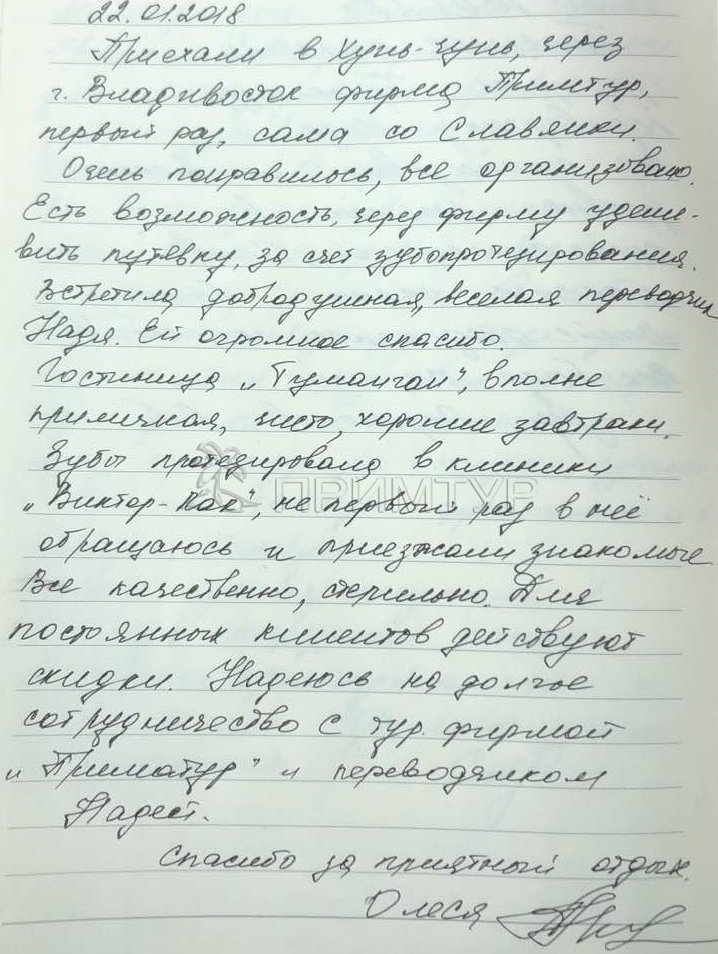 22.01.2018
Приехали в Хунь-чунь, через
г. Владивосток фирма Примтур,
первый раз, сама со Славянки.
Очень понравилось, все организовано.
Есть возможность, через фирму удеше-
вить путевку, за счет зубопротезирования.
Встретила добродушная, веселая переводчик
Надя. Ей огромное спасибо.
Гостиница „Туманган", вполне
приличная, чисто, хорошие завтраки.
Зубы протезировала в клиники
„Виктор-Пак", не первый раз в неё
обращаюсь и приезжали знакомые
Все качественно, стерильно. Для
постоянных клиентов действуют
скидки. Надеюсь на долгое
сотрудничество с тур. фирмой
„Приматур" и переводчиком
Надей.
Спасибо за приятный отдых.
Олеся
ПРИМТУР